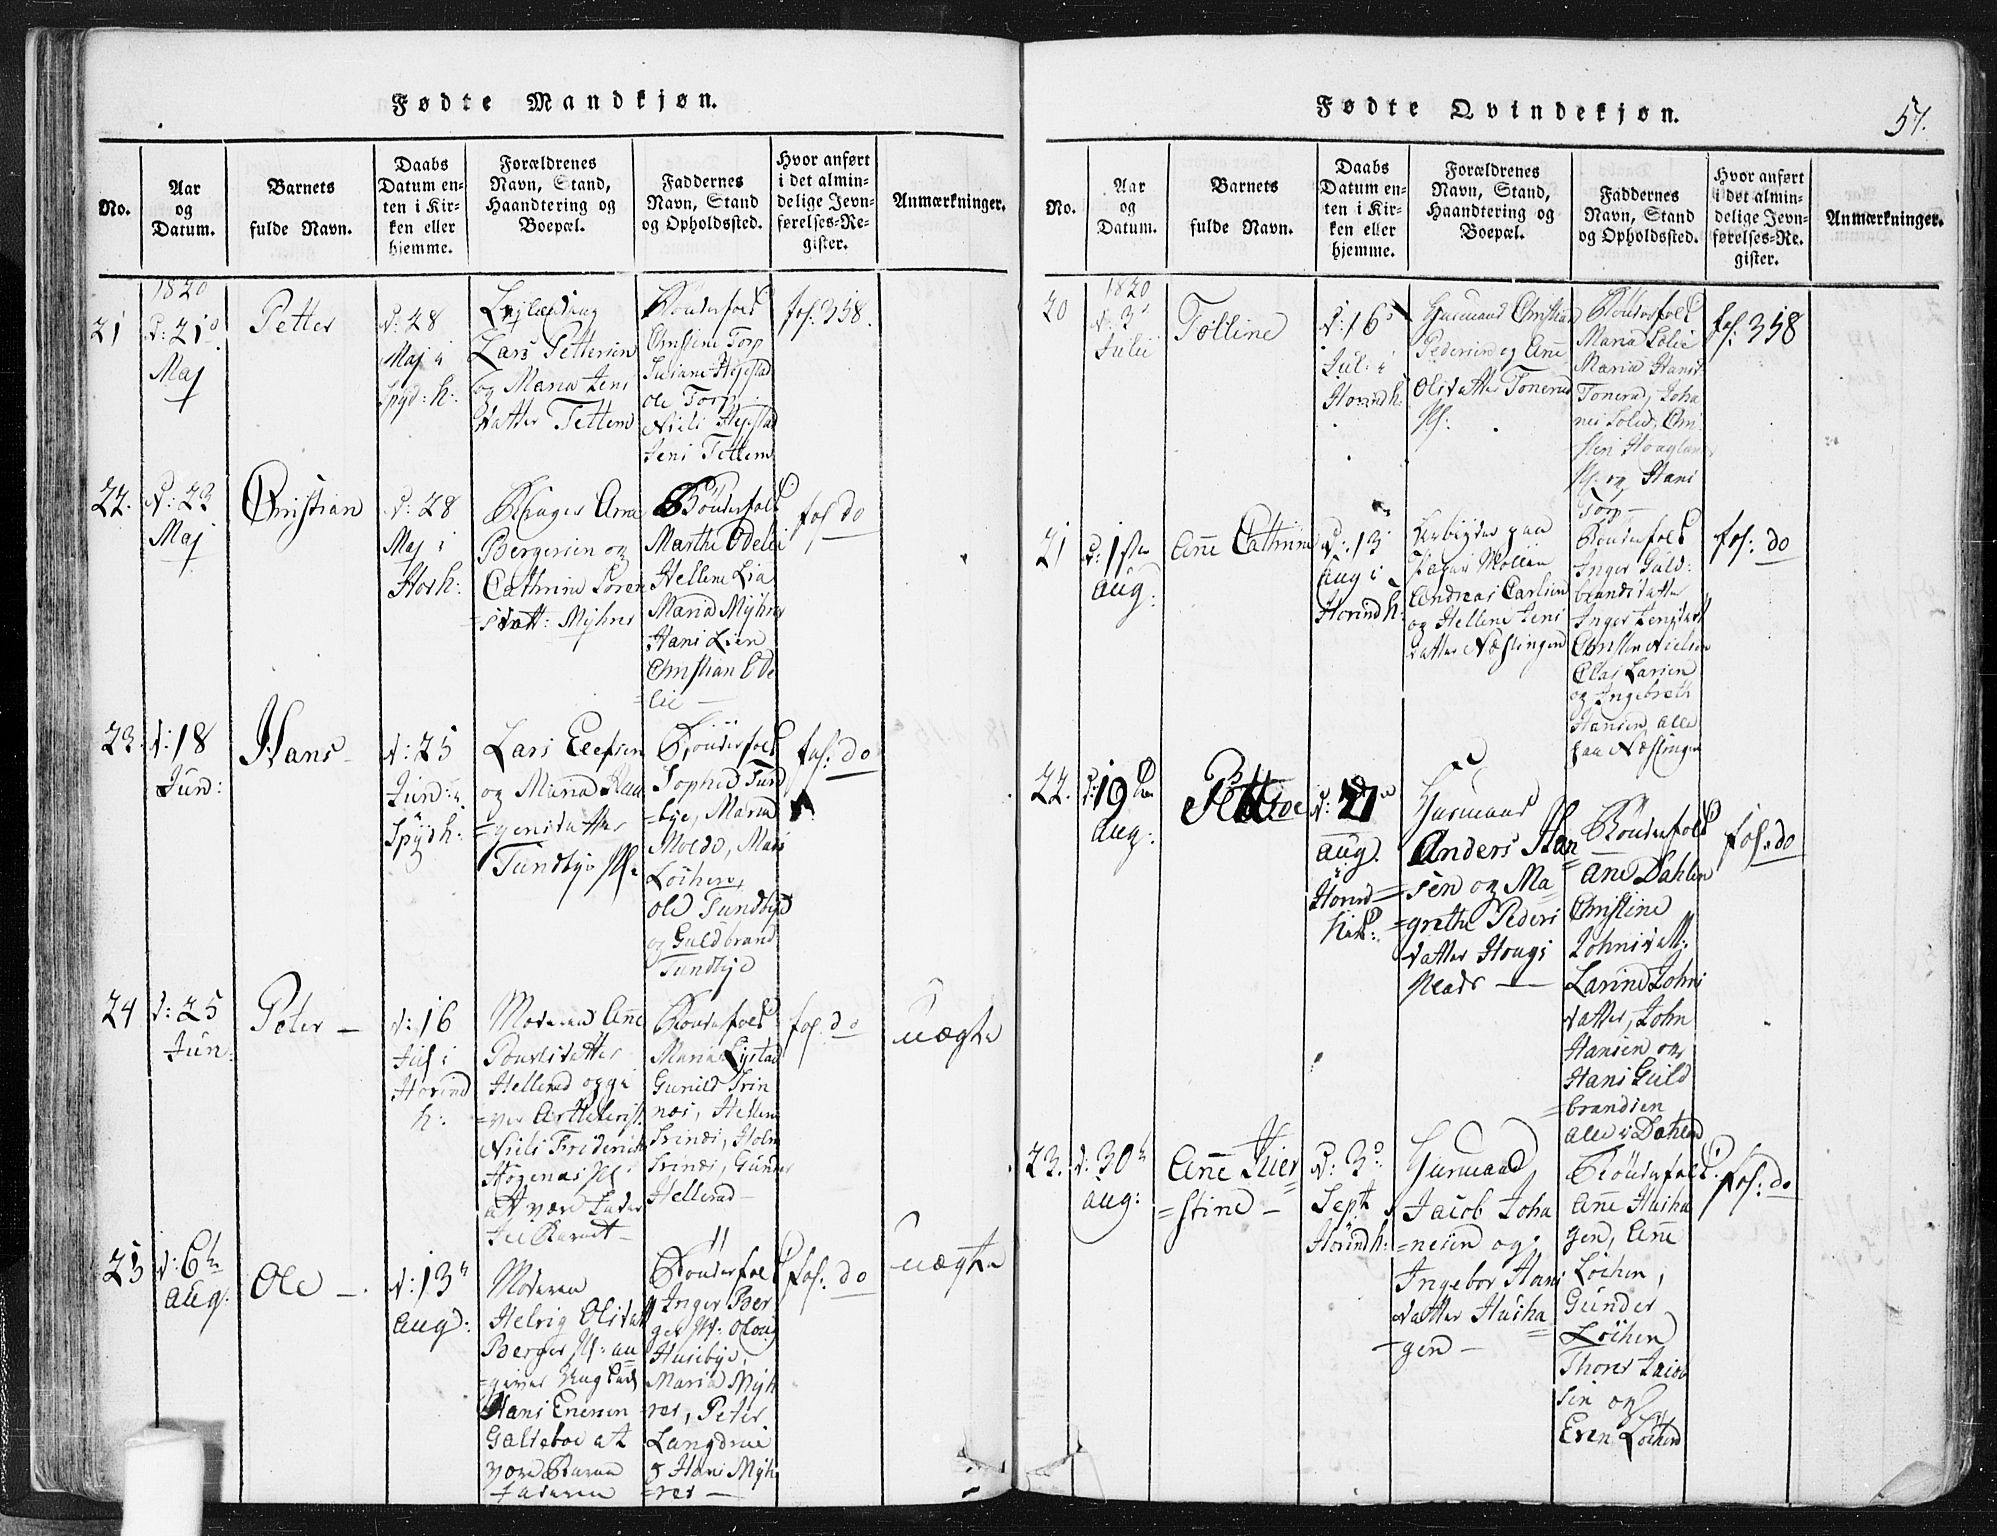 Fødte Mandkjøn.
No.
Aar
og
Datum.
Barnets
fulde Navn.
Daabs
Datum en-
ten i Kir-
ken eller
hjemme.
Forældrenes
Navn, Stand,
Haandtering og
Boepæl.
Faddernes
Navn, Stand
og Opholdssted.
Hvor anført
i det almin-
delige Jevn-
førelses-Re-
gister.
Anmærkninger.
21
1820
d: 21
Maj
Petter
d: 28
Maj i
Spyd: k:
Lars Pettersen
og Maria Jens
datter Tettem
Bönderfolk
Christine Torp
Ole Torp
Niels
Jens Tettem
fol. 358.
22.
d: 23
Maj
Christian
d: 28
Maj i
Hovk:
Arne
Bergersen og
Cathrine Soren
=sdatt: Myhrer
Bönderfolk
Marthe Odelie
Hellene Lia
Maria Myhrer
Hans Lien
Christian Ode
=lie —
fol do
23.
d: 18
Jun:
Hans —
d: 25
Jun: i
Spydk:
Lars Elefsen
og Maria
=gensdatter
Tundbye Pl:
Bönderfolk
Sophie Tund
=bye, Maria
Moldo,
Löchen,
Ole Tundbye
og Guldbrand
Tundbye
fol: do
24
d: 25
Jun:
Peter —
d: 16
Jul i
Hovind
k:
Moderen Anne
Povelsdatter
Hellerud opgi
=ver
Niels Friderich
at være Fader
til Barnet —
Bönderfolk
Maria
Gunild Trin
næs, Hellene
Trinæs, Holm
Trinæs, Gunder
Hellerud —
fol. do
uægte
25
d: 6te
Aug:
Ole —.
d: 13
Aug:
Moderen
Helvig Olsdatt
Berger Pl: an
=giver Ung Karl
Hans Enersen
Galteboe at
være Barne
faderen
Bönderfolk
Inger Ber
ger Pl: Olou
Husebye,
Maria Myh
=rer, Peter
Langdraie
& Hans Myh
=rer —
fol: do
uægte
Fødte Qvindekjøn.
57.
No.
Aar
og
Datum.
Barnets
fulde Navn.
Daabs
Datum en-
ten i Kir-
ken eller
hjemme.
Forældrenes
Navn, Stand,
Haandtering og
Boepæl.
Faddernes
Navn, Stand
og Opholdssted.
Hvor anført
i det almin-
delige Jevn-
førelses-Re-
gister.
Anmærkninger.
20
1820
d: 3
Julii
Tolline
d: 16
Jul: i
Hovindk:
Husmand Christian
Pedersen og Anne
Olsdatter Tonerud
Pl:
Bönderfolk
Maria Solie
Maria Hansd
Tonerud, Joha
nes Solie, Chri
sten Hougland
Pl: og Hans
Torp —
fol: 358
21
d: 1ste
Aug:
Anne Cathrine
d: 13
Aug i
Hovindk:
Arbeyder paa
Andreas Carlsen
og Hellene Jens
datter Næstingen
Bönderfolk
Inger Guld:
brandsdatter
Inger Jensdatt
Christen Nielsen
Olaf Larsen
og Ingebreth
Hansen, alle
paa Næstingen
fol: do
22.
d: 19de
Aug:
d: 27
Aug.
Hovind
kirk:
Husmand
Anders Han
=sen og Ma
=grethe Peders
datter Hougs
Plads —
Bönderfolk
Ane Dahlen
Christine
Johnsdatt:
Larine Johns
datter, John
Hansen og
Hans Guld
=brandsen
alle i Dahlen
fol: do
23.
d: 30
Aug:
Anne Kier
=stine —
d: 3
Sept i
Hovindk:
Husmand
Jacob Joha
=nesen og
Ingebor Hans
datter Husha
=gen —
Bönderfolk
Anne Husha
gen, Anne
Löchen,
Gunder
Löchen
Thorer Jacob
sen og
Even Löchen
fol: do